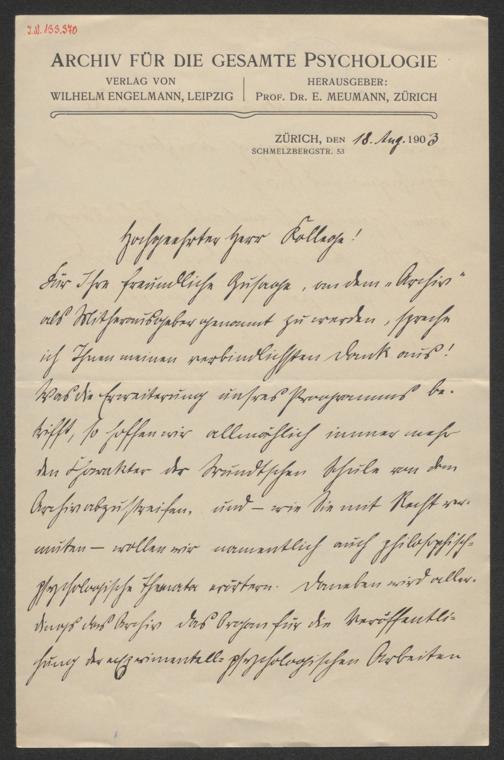 I.N. 133.370
ARCHIV FÜR DIE GESAMTE PSYCHOLOGIE
VERLAG VON
WILHELM ENGELMANN, LEIPZIG
HERAUSGEBER:
PROF. DR. E. MEUMANN, ZÜRICH
ZÜRICH, DEN 18. Aug. 1903
SCHMELZBERGSTR. 53
Hochgeehrter Herr Kollege!
Für Ihre freundliche Zusage, an dem „Archiv"
als Mitherausgeber genannt zu werden, spreche
ich Ihnen meinen verbindlichsten Dank aus!
Was die Erweiterung unsres Programms be-
trifft, so hoffen wir allmählich immer mehr
den Charakter der Wundtschen Schule von dem
Archiv abzustreifen, und – wie Sie mit Recht ver-
muten – wollen wir namentlich auch philosophisch-
psychologische Themata erörtern. Daneben wird aller-
dings das Archiv das Organ für die Veröffentli-
chung der experimentell-psychologischen Arbeiten